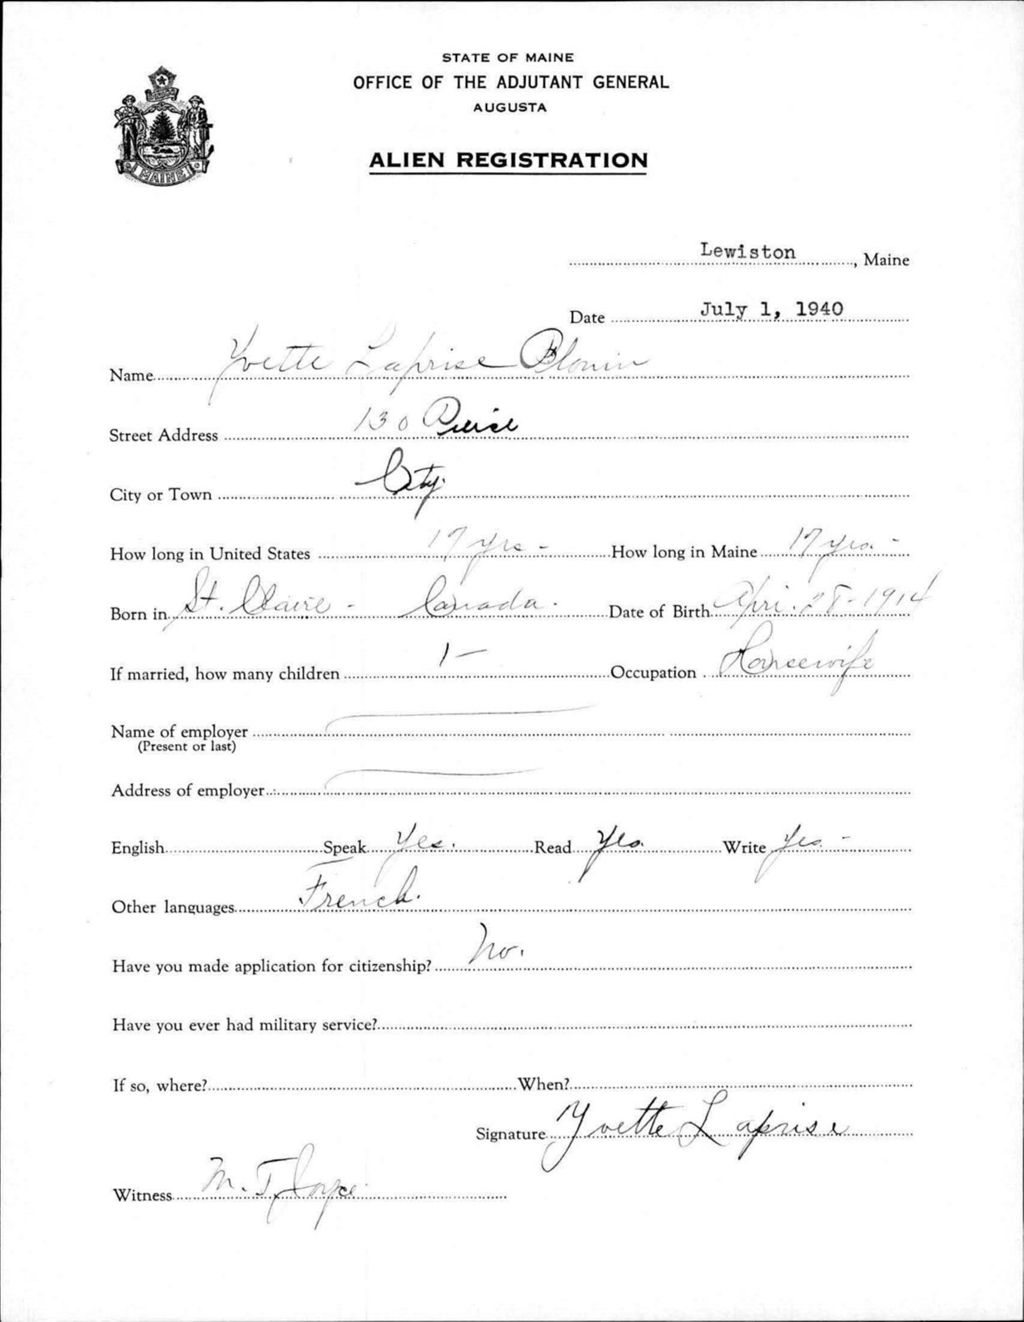 STATE OF MAINE
OFFICE OF THE ADJUTANT GENERAL
AUGUSTA
ALIEN REGISTRATION
MAINE
Lewiston, Maine
Date July 1, 1940
Name Yvette Laprise Blouin
Street Address 130 Pierce
City or Town City.
How long in United States 17 yrs - How long in Maine 17 yrs. -
Born in St. Claire - Canada. Date of Birth Apri. 28 - 1914
If married, how many children 1 - Occupation Housewife
Name of employer
(Present or last)
Address of employer
English Speak Yes. Read Yes. Write Yes -
Other languages French.
Have you made application for citizenship? No.
Have you ever had military service?
If so, where? When?
Signature Yvette Laprise
Witness M. T. Joyce